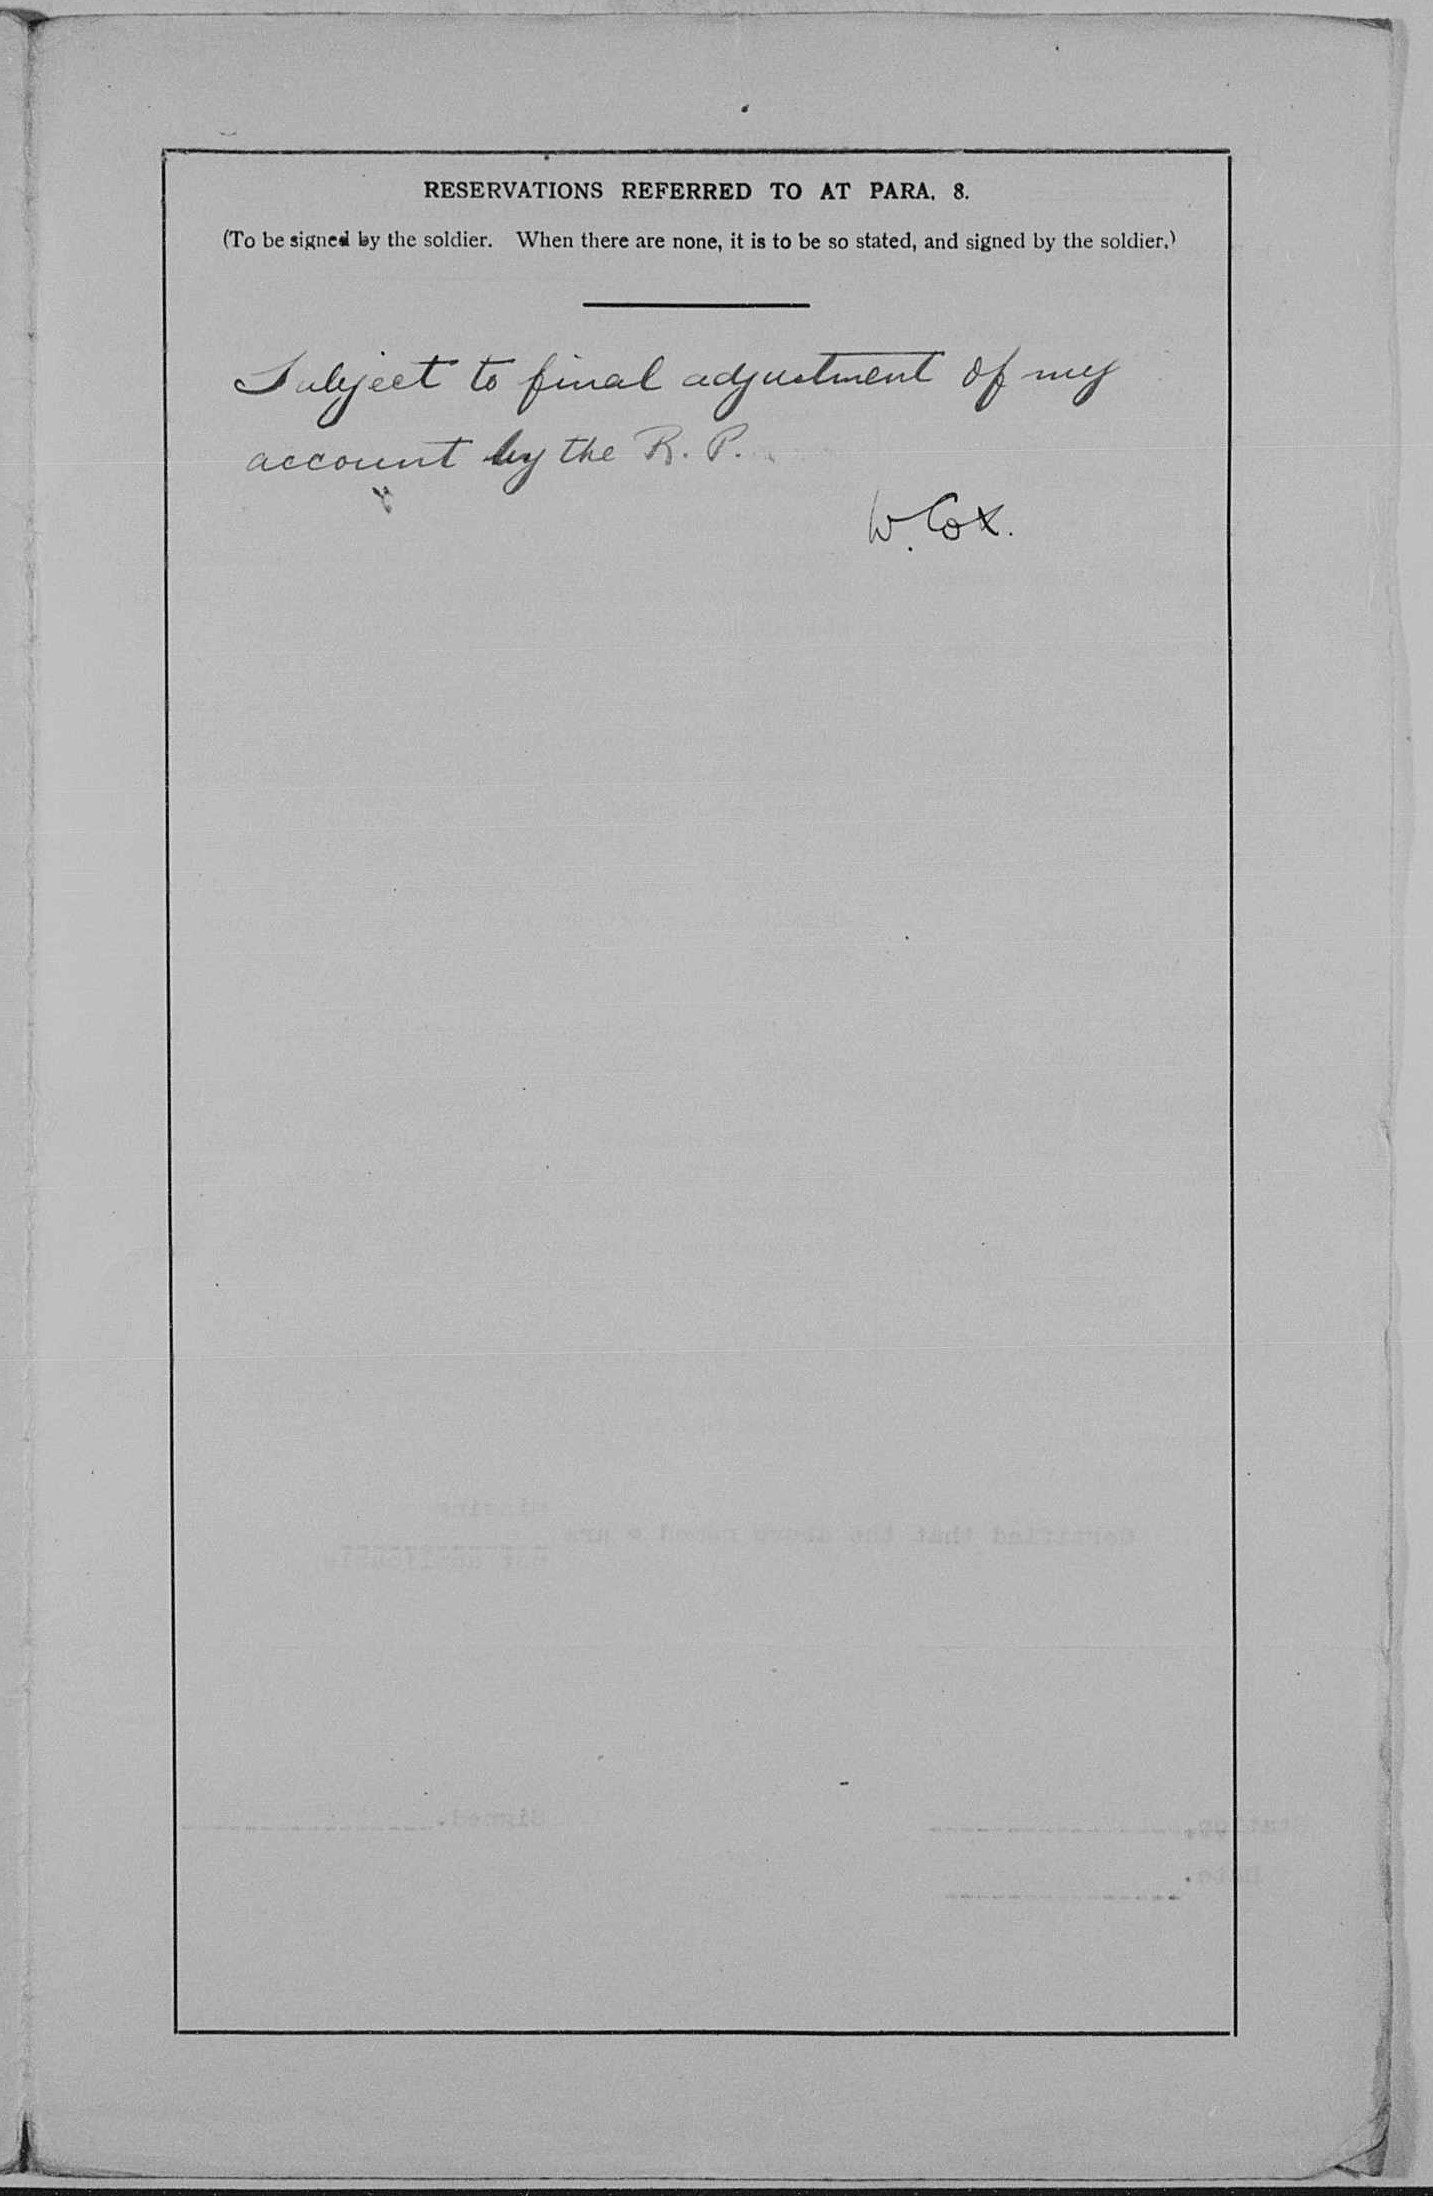 RESERVATIONS REFERRED TO AT PARA. 8.
(To be signed by the soldier. When there are none, it is to be so stated, and signed by the soldier.)
Subject to final adjustment of my
account by the R. P.
W. Cox.
Certified that the above named
Signed.
Date.